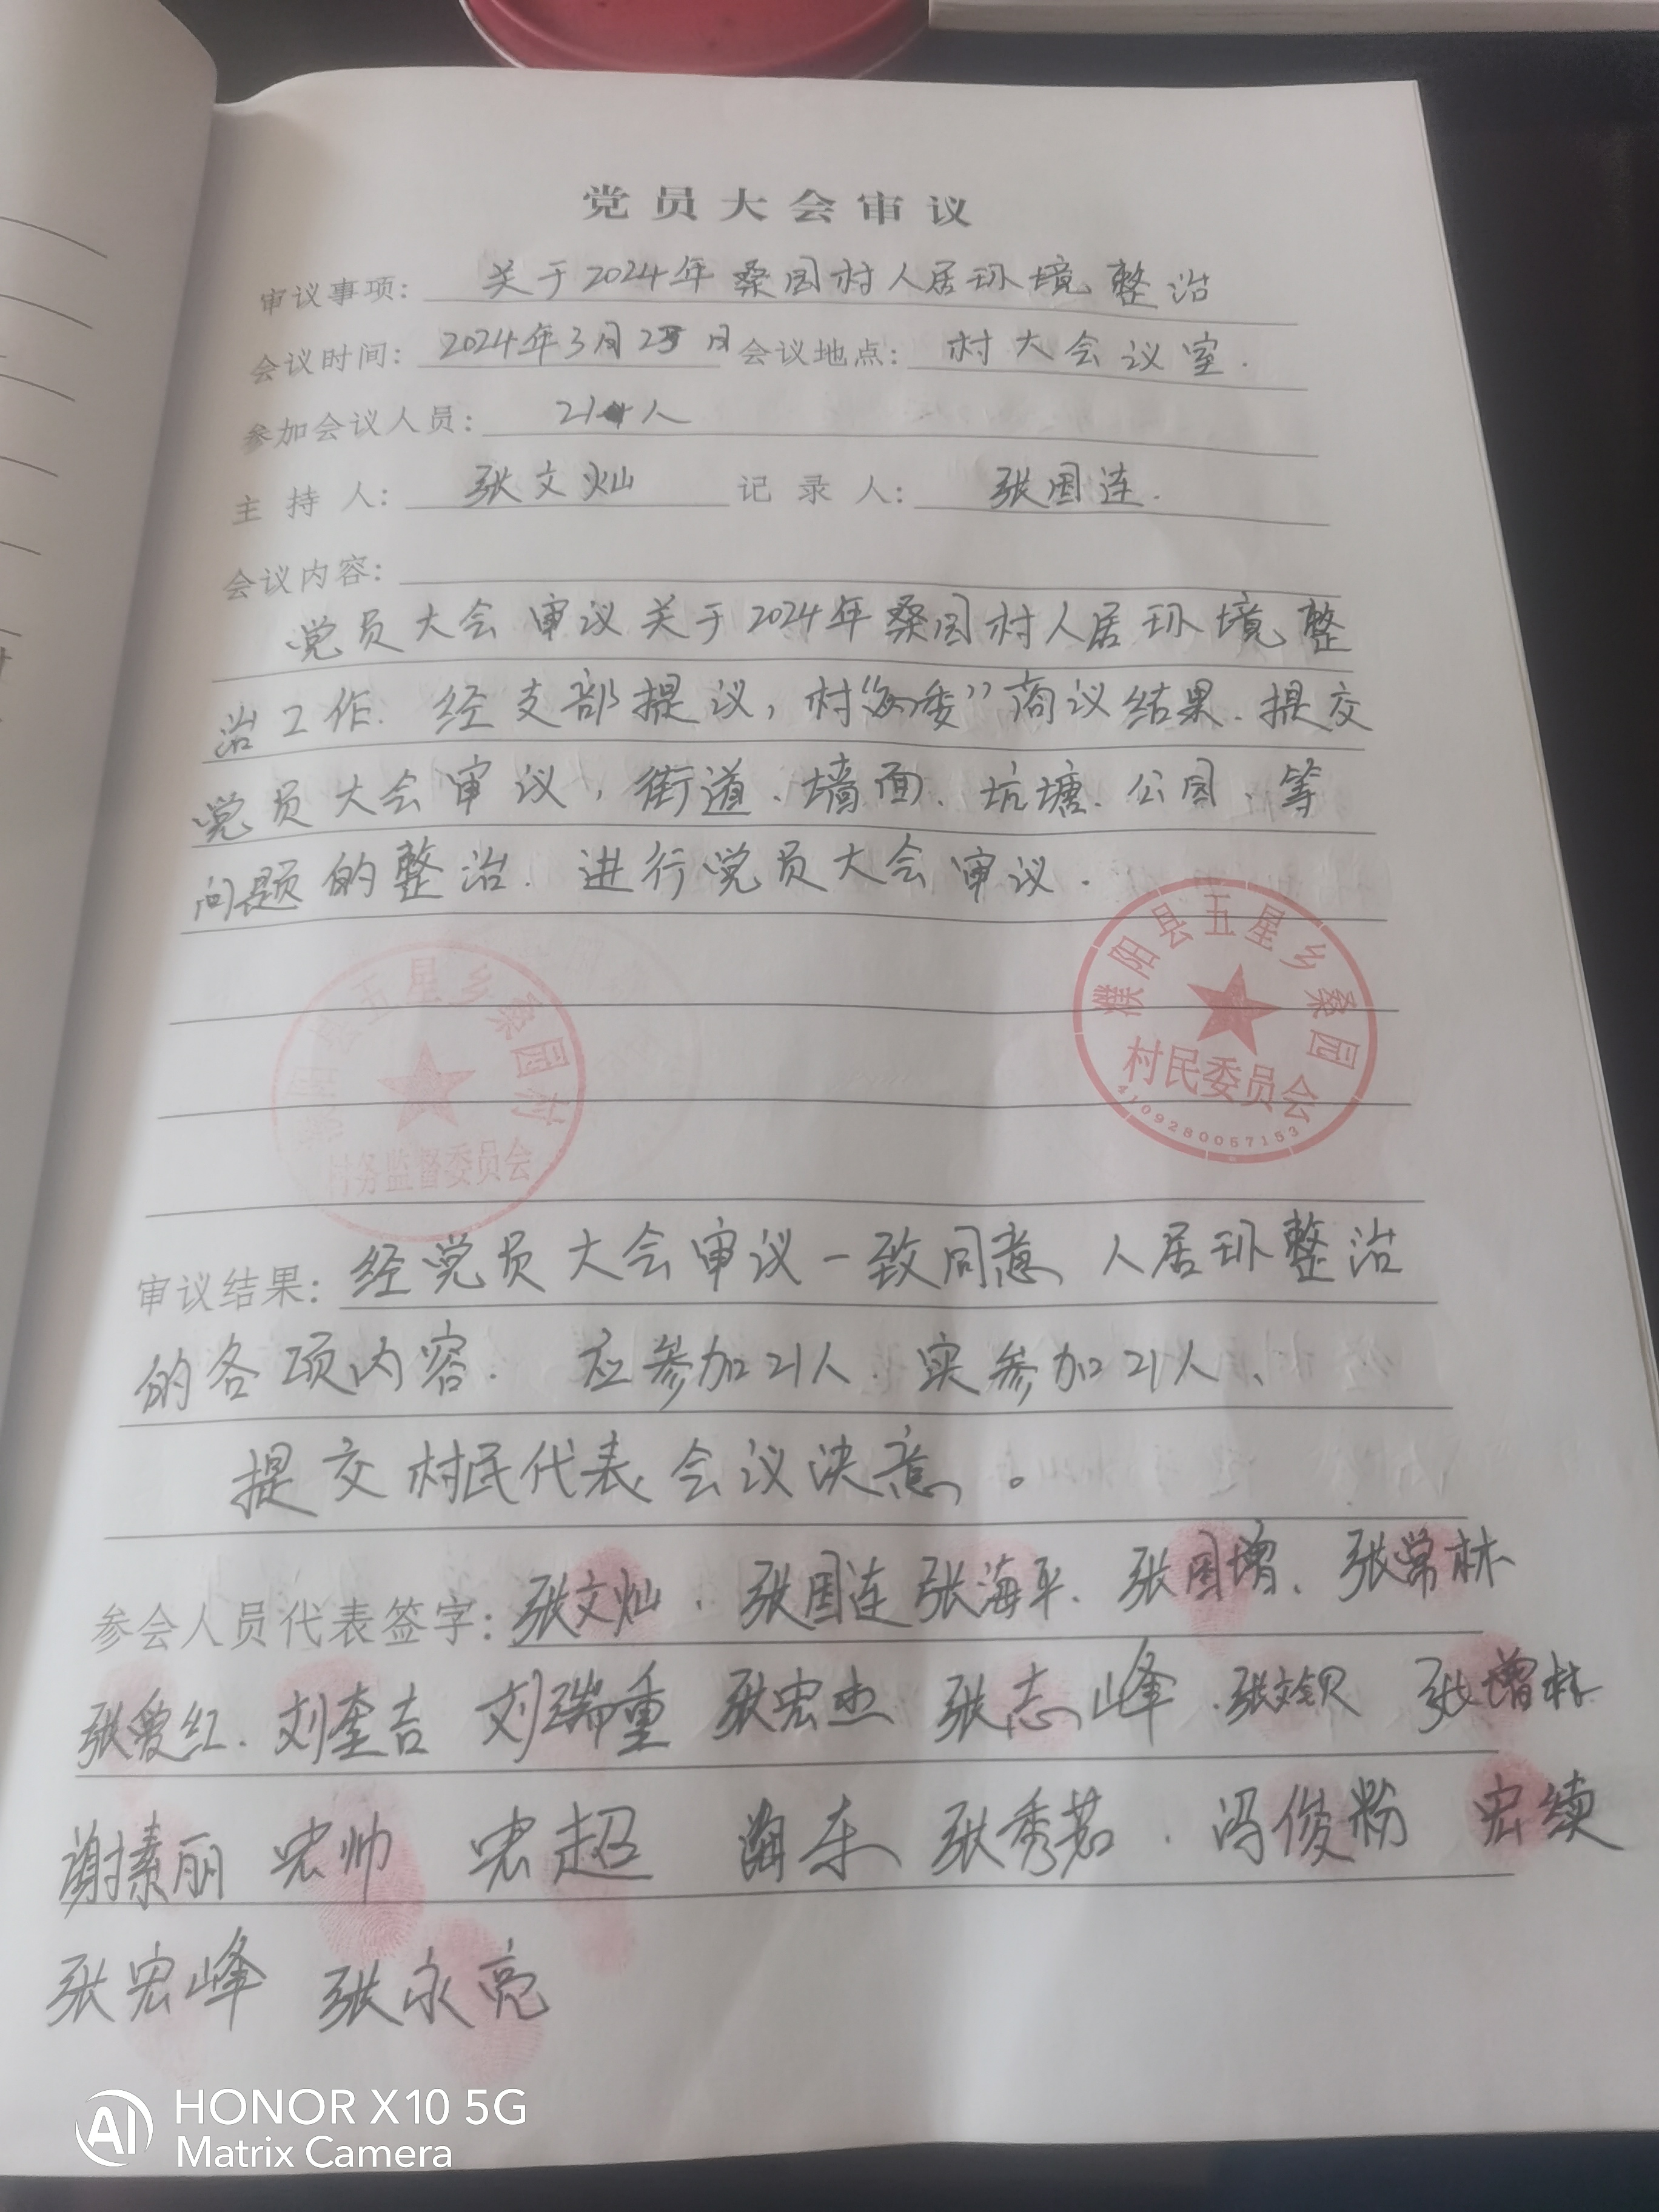 党员大会审议
审议事项: 关于2024年桑园村人居环境整治
会议时间: 2024年3月25日 会议地点: 村大会议室.
参加会议人员: 21人
主持人: 张文灿 记录人: 张国连.
会议内容:
党员大会审议关于2024年桑园村人居环境整
治工作. 经支部提议, 村“两委”商议结果、提交
党员大会审议, 街道、墙面、坑塘、公园、等
问题的整治. 进行党员大会审议.
濮阳县五星乡桑园
村民委员会
4109280057153
五星乡桑园村
村务监督委员会
审议结果: 经党员大会审议一致同意、人居环整治
的各项内容. 应参加21人. 实参加21人、
提交村民代表会议决意。
参会人员代表签字: 张文灿、张国连 张海平、张国增、张常林
张爱红、刘奎吉 刘瑞重 张宏杰 张志峰 张增林
谢素丽 宏帅 宏超 海东 张秀茗. 冯俊粉 宏续
张宏峰 张永亮
AI HONOR X10 5G
Matrix Camera